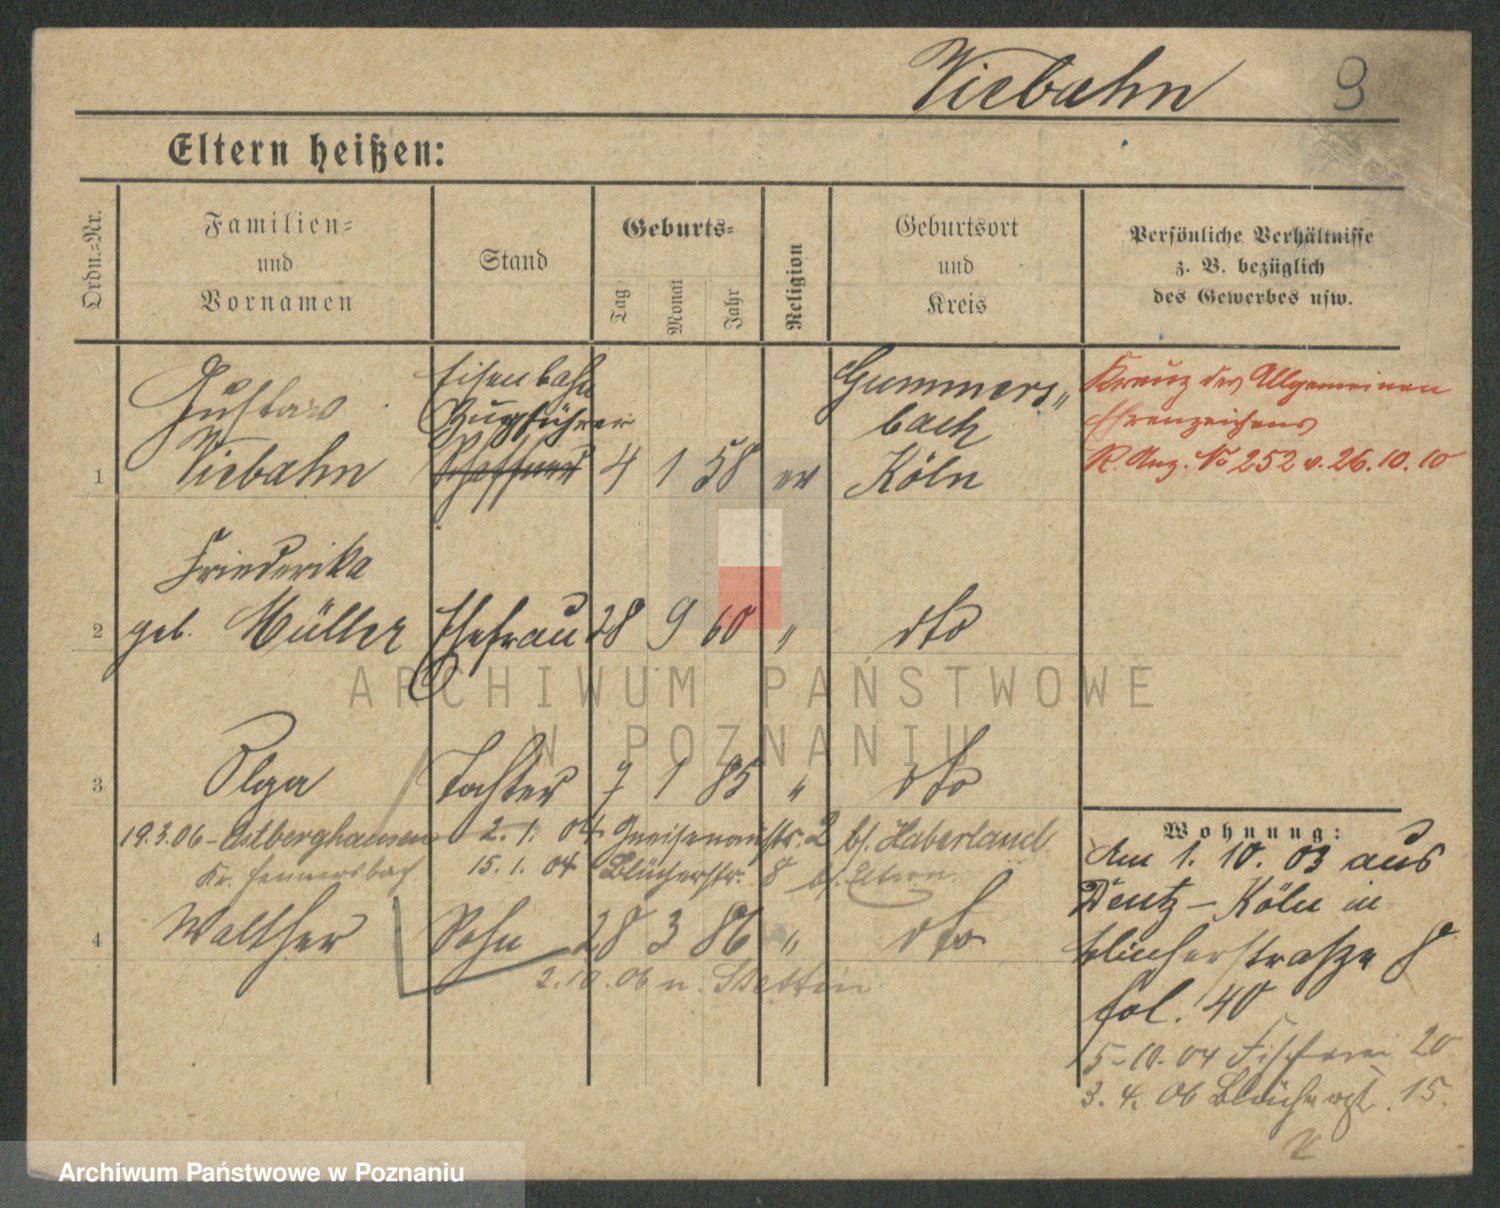 Viebahn 9
Eltern heißen:
Ordn.-Nr.
Familien-
und
Vornamen
Stand
Geburts-
Tag
Monat
Jahr
Religion
Geburtsort
und
Kreis
Persönliche Verhältnisse
z. B. bezüglich
des Gewerbes usw.
Gustav
Viebahn
Eisenbahn
Zugführer
Schaffner
1 4 1 58 ev
Gummers„
bach
Köln
Kreuz des Allgemeinen
Ehrenzeichens
R. Anz. No 252 v. 26.10.10
Friederika
2 geb. Müller Ehefrau 28 9 60 „ dto
3 Olga Tochter 7 1 85 „ dto
19.3.06 - 2.1.04 Gneisenaustr. 2 bs. Haberland
Kr. 15.1.04 Blücherstr. 8 bs. Eltern
4 Walther Sohn 28 3 86 „ dto
2.10.06 n. Stettin
Wohnung:
Am 1. 10. 03 aus
Deutz - Köln in
Blücherstraße 8
fol. 40
5-10-04 Fischerei 20
3. 4. 06 Blücherstr. 15.
ARCHIWUM PAŃSTWOWE
W POZNANIU
Archiwum Państwowe w Poznaniu